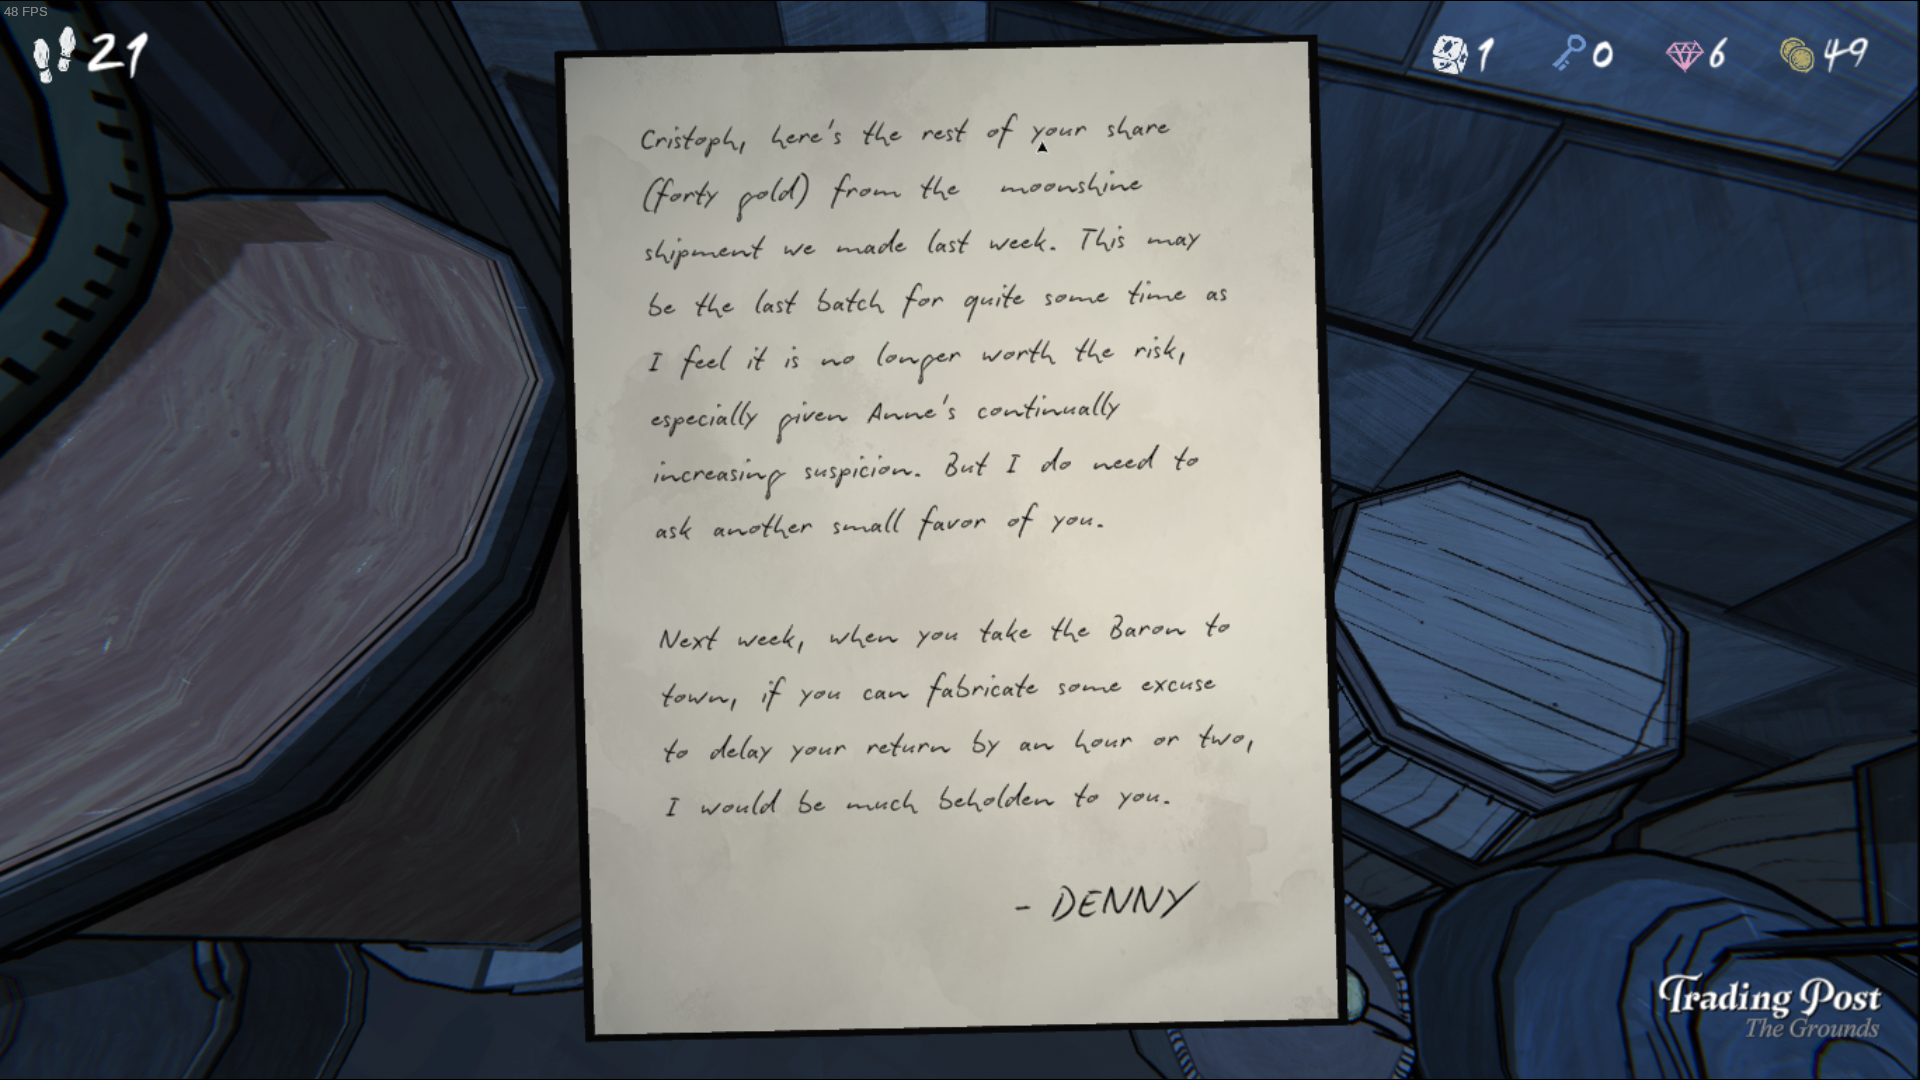 48 FPS
21
1
0
6
49
Cristoph, here's the rest of your share
(forty gold) from the moonshine
shipment we made last week. This may
be the last batch for quite some time as
I feel it is no longer worth the risk,
especially given Anne's continually
increasing suspicion. But I do need to
ask another small favor of you.
Next week, when you take the Baron to
town, if you can fabricate some excuse
to delay your return by an hour or two,
I would be much beholden to you.
- DENNY
Trading Post
The Grounds